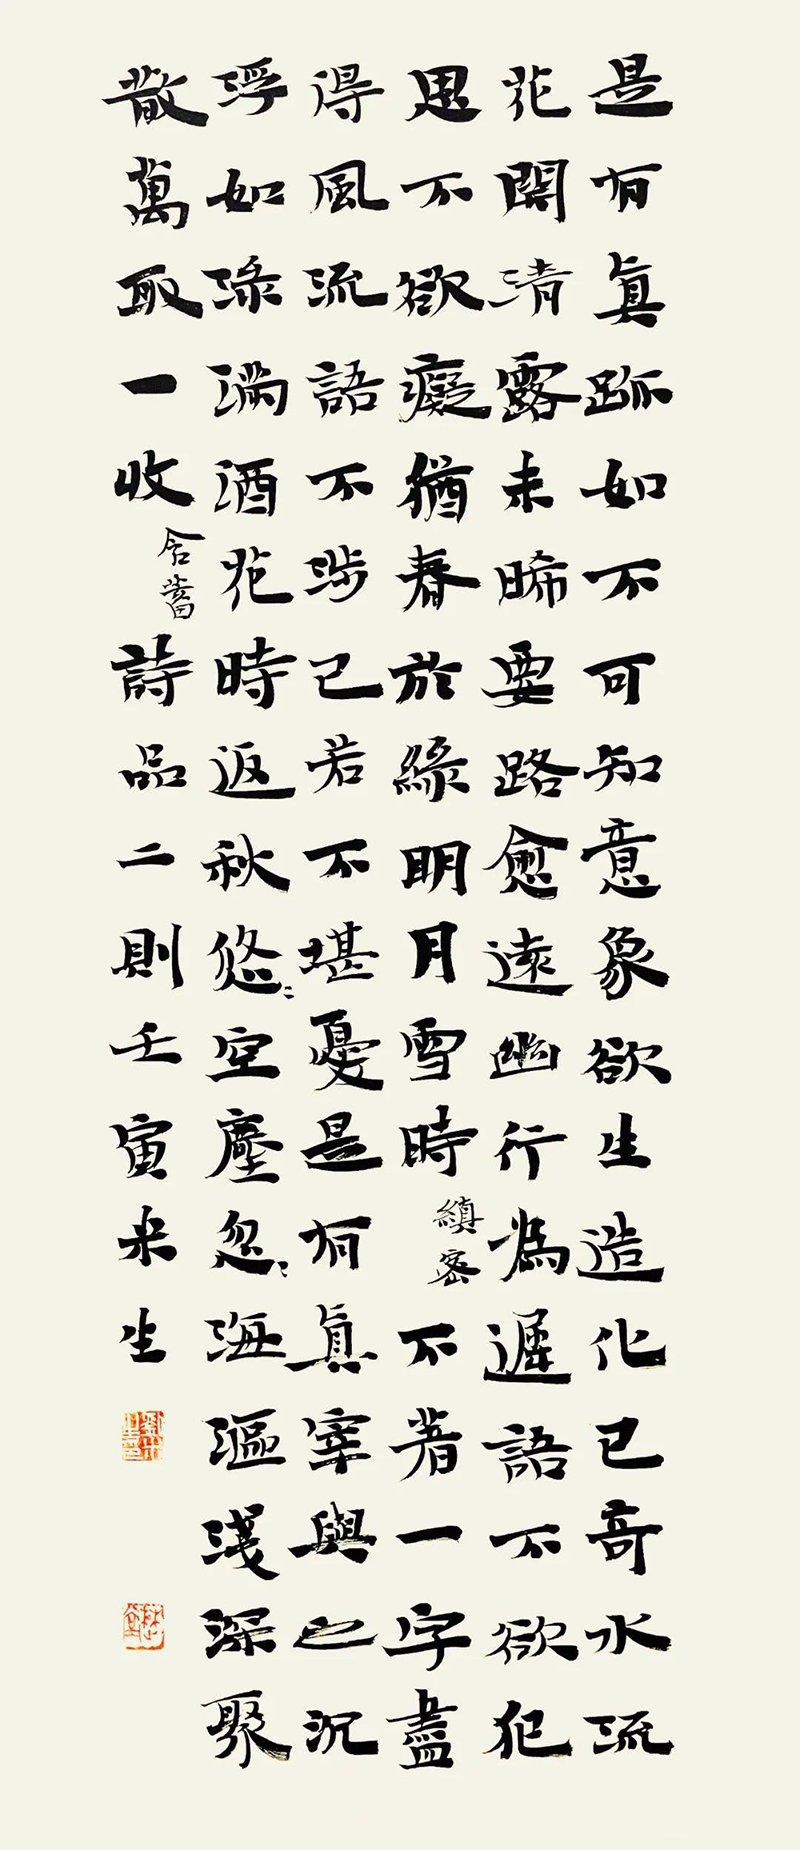 是有真跡如不可知意象欲生造化已奇水流
花開清露未晞要路愈遠幽行為遲語不欲犯
思不欲癡猶春於綠明月雪時縝密不著一字盡
得風流語不涉己若不堪憂是有真宰與之沉
浮如淥滿酒花時返秋悠〻空塵忽〻海漚淺深聚
散萬取一收含蓄詩品二則壬寅米生